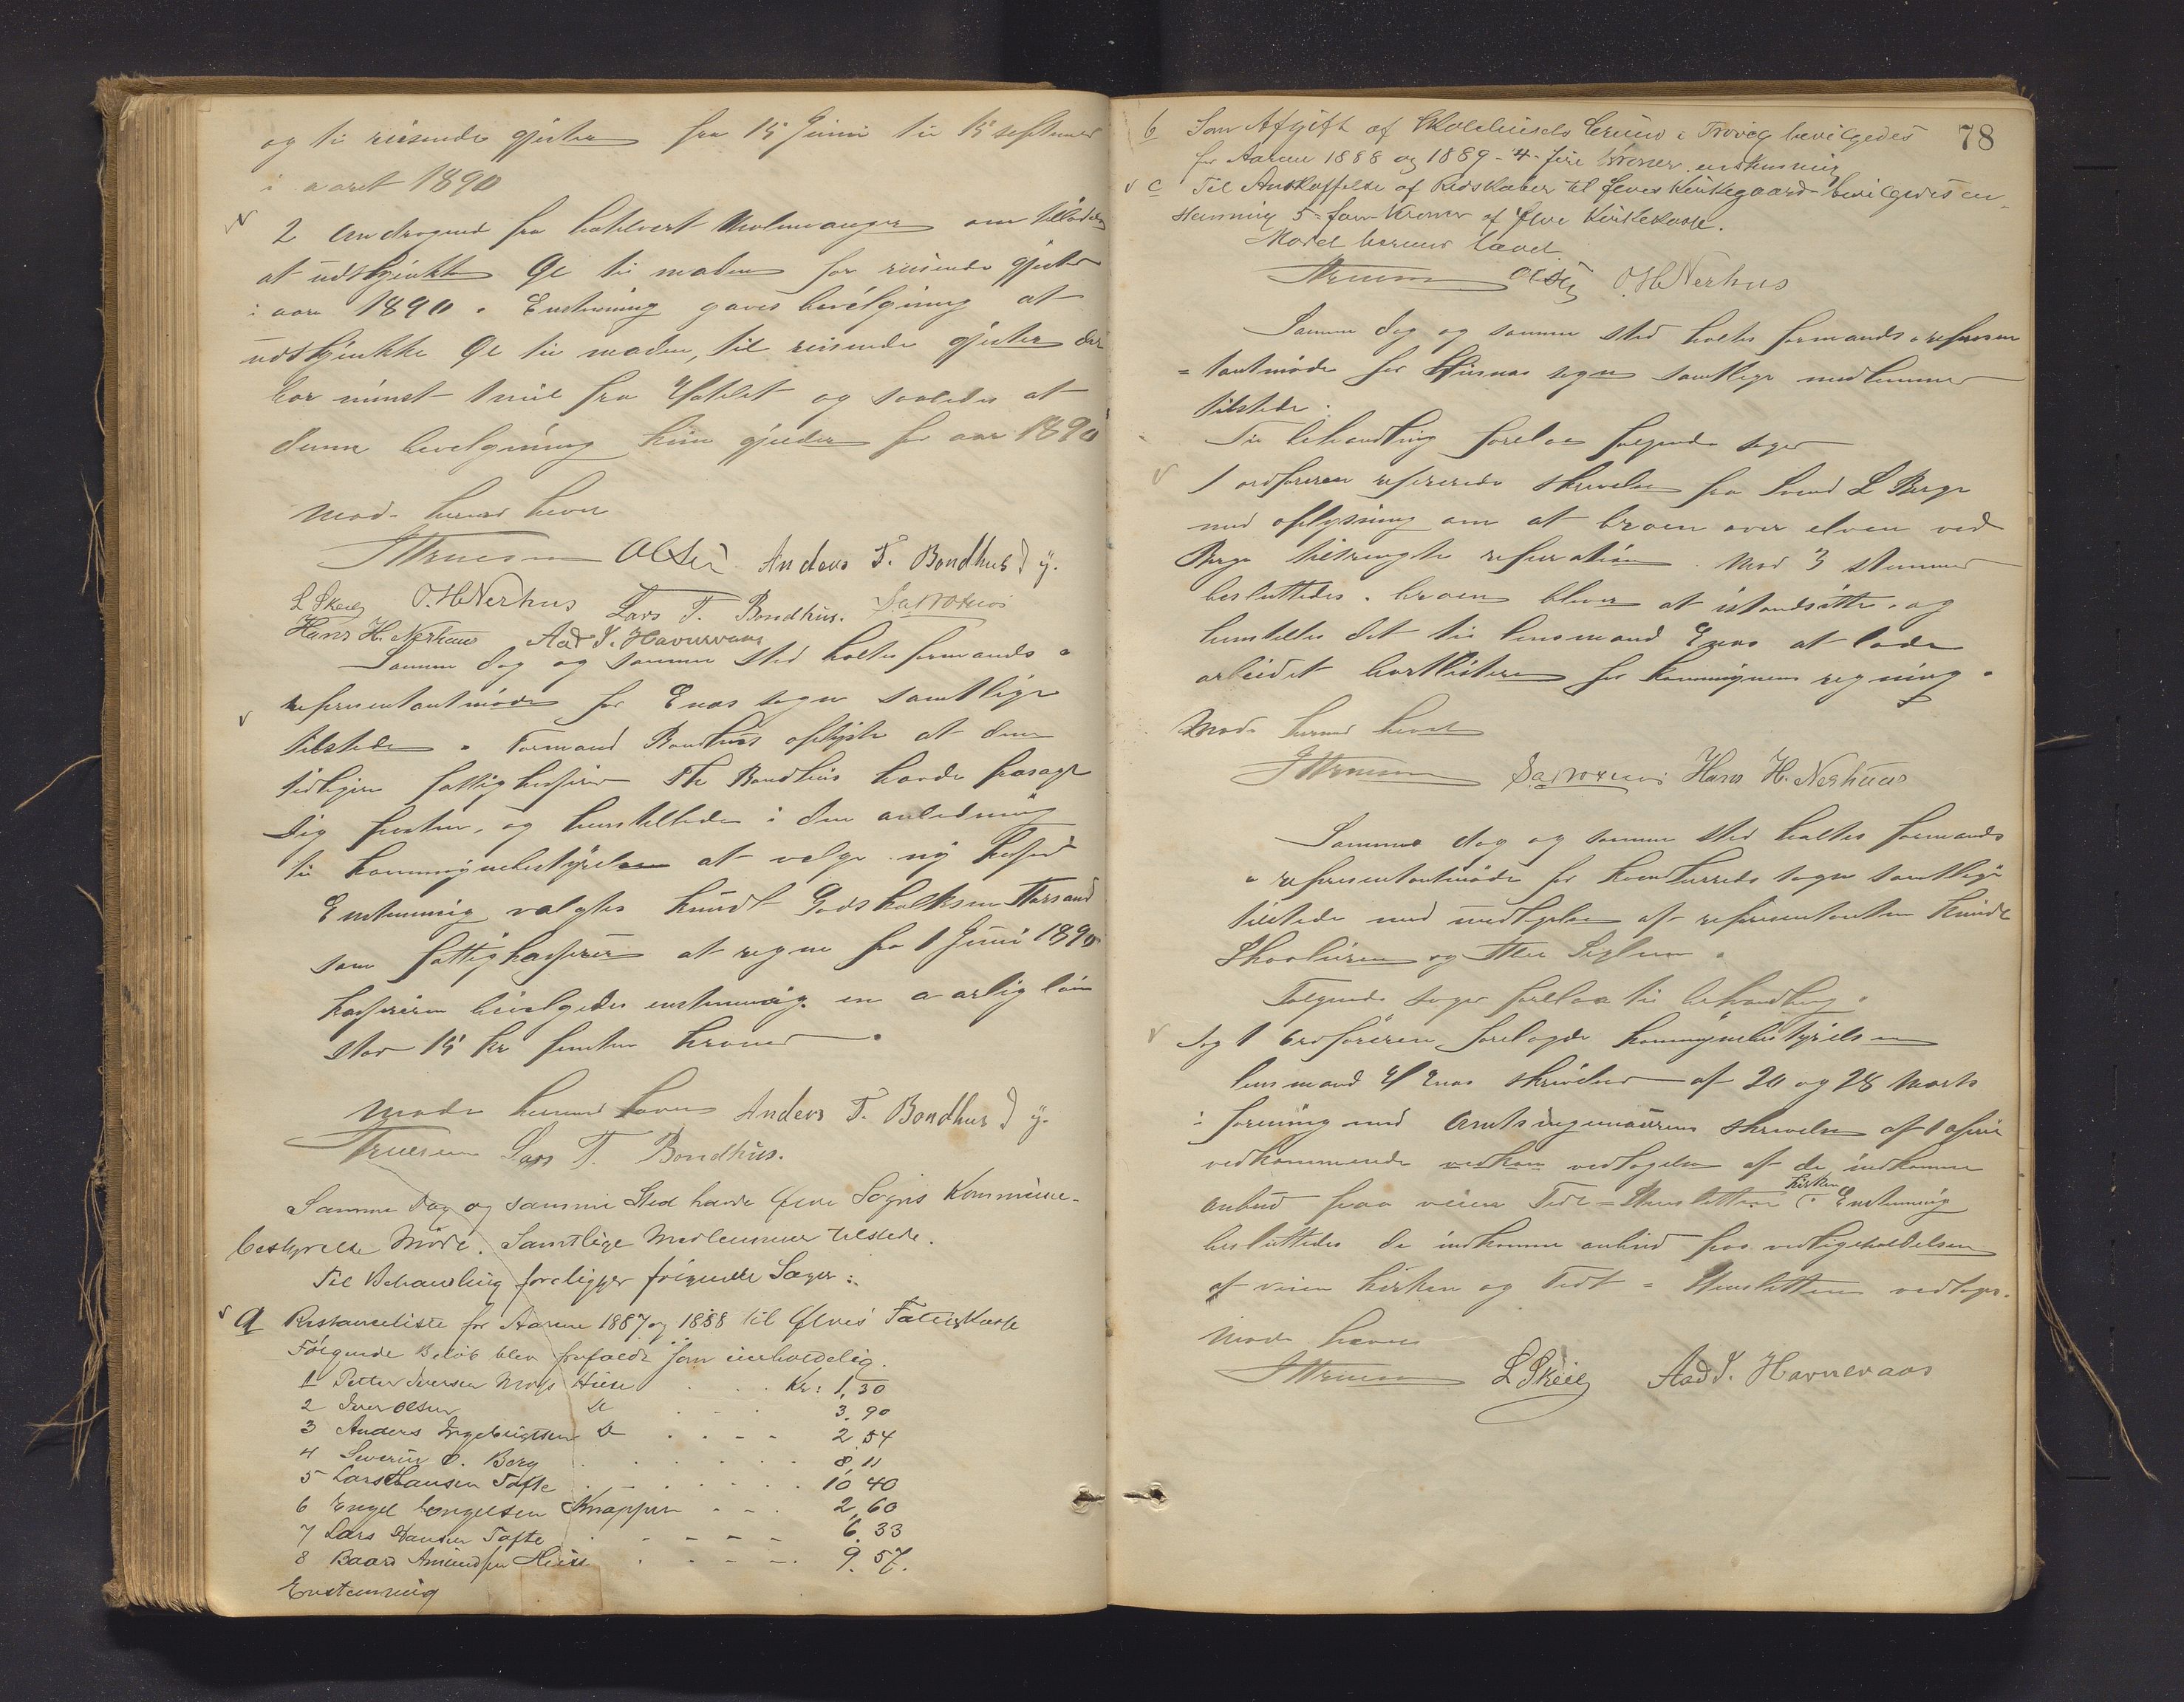 og til reisende gjester fra 15 Juni til 15 september
i aaret 1890
2 Andragende fra Malmanger om tilladelse
at udskjenkte Øl til maden for reisende gjester
i aar 1890. Enstemmig gaves bevilgning at
udskjenkke Øl til maden, til reisende gjester der
bor minst 1 mil fra Hotelet og saaledes at
denne bevilgning kun gjelder for aar 1890
Møde herved hævet
Anders T. Bondhus
L Skeie O. H Nerhus Lars T. Bondhus.
Hans H. Nerhuus Aad J. Havnevaas
Samme dag og samme sted holtes formands &
representantmøde for Enæs sogn samtlige
tilstede. Formand Bondhus oplyste at den
tidligere fattigkasserer Bondhus havde frasagt
sig posten, og henstillede i den anledning
til kommunebestyrelsen at velge ny kasserer
Enstemmig valgtes Knudt Godskalksen
som fattigkasserer at regne fra 1 Juni 1890
kassereren bevilgedes enstemmig en aarlig løn
stor 15 kr femten kroner
Møde herved hævet Anders T. Bondhus
Lars T. Bondhus.
Samme Dag og samme Sted havde Ølve Sogns Kommune-
bestyrelse Møde. Samtlige Medlemmer tilstede.
Til Behandling foreligger følgende Sager:
a Restanceliste for Aarene 1887 og 1888 til Ølves Fattigkasse
Følgende Beløb blev frafaldt som uerholdelig.
1 Petter Iversen Huse Kr: 1,30
2 Iver Olsen 3.90
3 Anders Ingebrigtsen 2.54
4 Severin O. Berg 8,11
5 Lars Hansen Tofte 10 40
6 Engel Engelsen Knappen 2,60
7 Lars Hansen Tofte 6.33
8 Baard Amundsen Huse 9.57.
Enstemmig
78
b Som Afgift af Skolehusets Grund i bevilgedes
for Aarene 1888 og 1889 - 4 - fire Kroner enstemmig
c Til Anskaffelse af Redskaber til Ølves Kirkegaard bevilgedes en-
stemmig 5 - fem Kroner af Ølve Kirkekasse.
Mødet herved hævet
O. H Nerhus
Samme dag og samme sted holtes formands & represen
= tantmøde for sogn samtlige medlemmer
tilstede.
Til behandling forelaa følgende sager
1 ordføreren refererede skrivelse fra Svend L Berge
med oplysning om at broen over elven ved
Berge tiltrengte reparation. Mod 3 stemmer
besluttedes broen bliver at istandsætte, og
henstilles det til lensmand Enæs at lade
arbeidet bortlicitere for kommunens regning.
Møde herved hævet
Hans H. Nerhuus
Samme dag og samme sted holtes formands
& representantmøde for Kvinherreds sogn samtlige
tilstede med undtagelse af representanten Knudt
og
Følgende sager forelaa til behandling.
Sag 1 Ordføreren forelagde kommunebestyrelsen
lensmand Enæs skrivelser af 20 og 28 Marts
i forening med Amtsingeniørens skrivelse af 1 april
vedkommende vedkom vedtagelse af de indkomne
anbud paa veien Tedt = kirken Enstemmig
besluttedes de indkomne anbud paa vedligeholdelsen
af veien kirken og Tedt = vedtages.
Møde hævet
L Skeie Aad J. Havnevaas